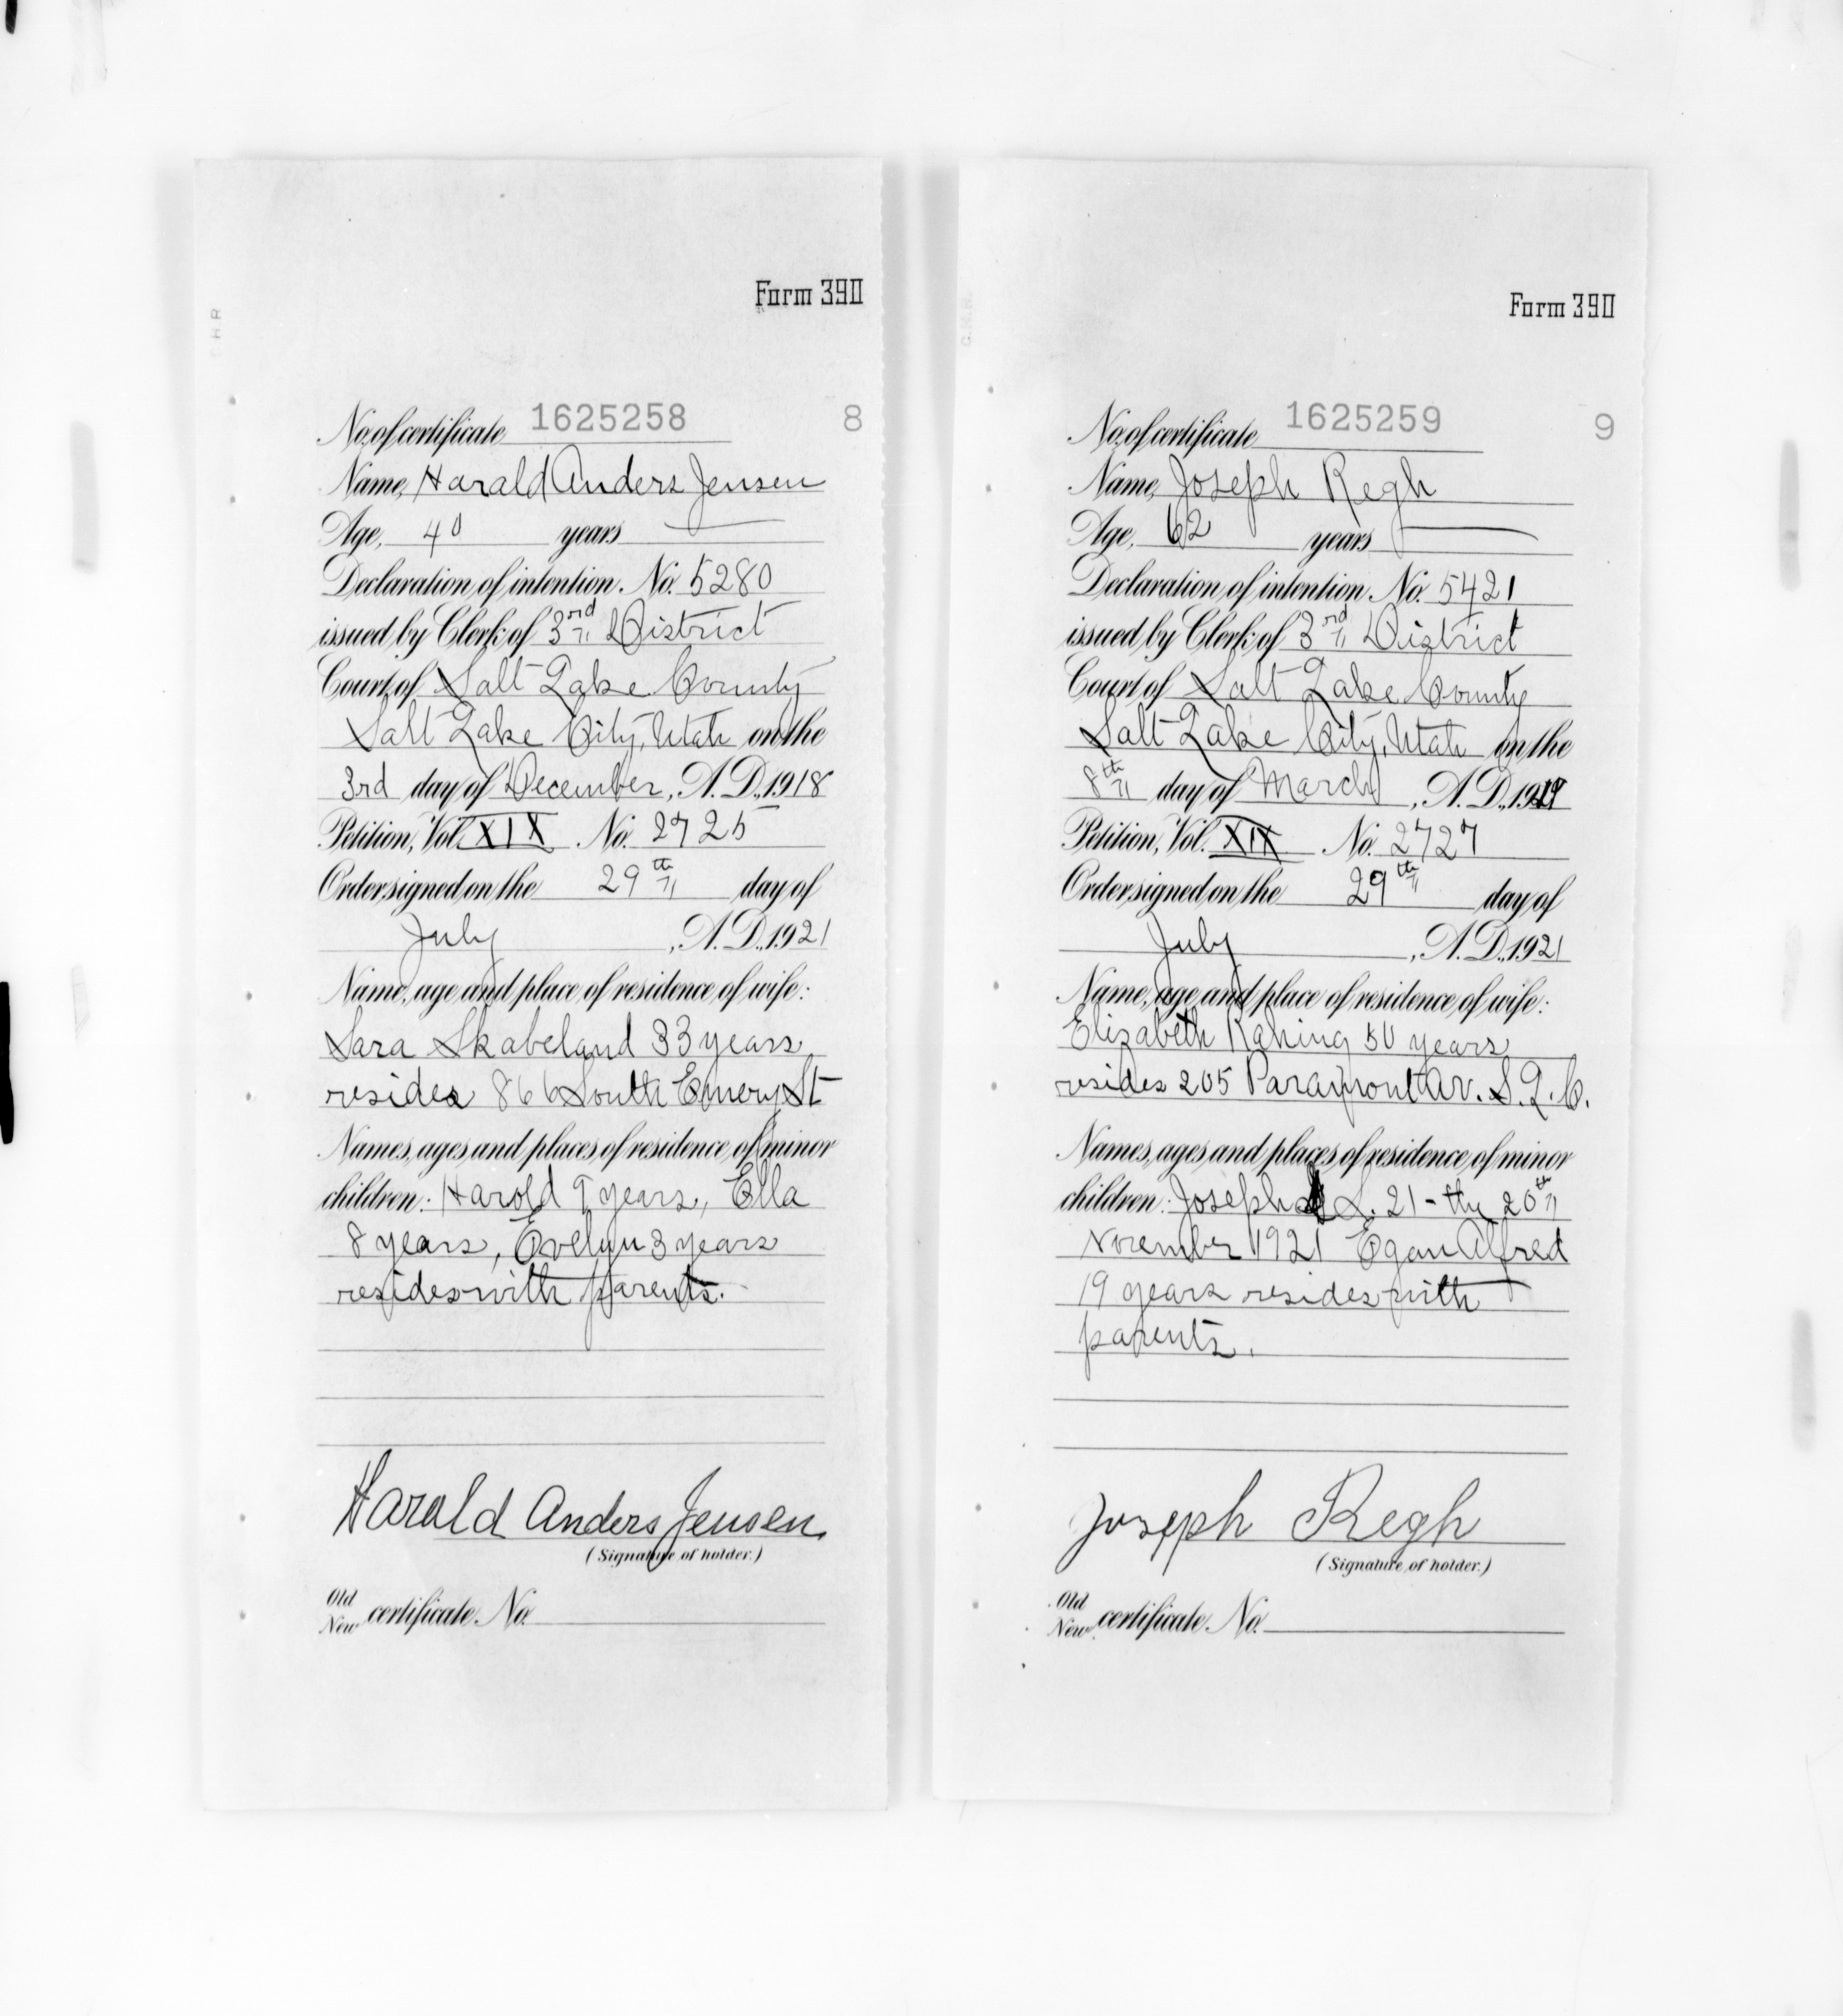 Form 390
No. of certificate 1625258 8
Name, Harald Anders Jensen
Age, 40 years
Declaration of intention. No. 5280
issued by Clerk of 3rd District
Court of Salt Lake County
Salt Lake City, Utah on the
3rd day of December, A.D. 1918
Petition, Vol. XIX No. 2725
Order signed on the 29th day of
July, A.D. 1921
Name, age and place of residence of wife:
Sara Skabelund 33 years
resides 866 South Emery St
Names, ages and places of residence of minor
children: Harold 9 years, Ella
8 years, Evelyn 3 years
resides with parents.
Harald Anders Jensen
(Signature of holder.)
Old
New certificate No.
Form 390
No. of certificate 1625259 9
Name, Joseph Regh
Age, 62 years
Declaration of intention. No. 5421
issued by Clerk of 3rd District
Court of Salt Lake County
Salt Lake City, Utah on the
8th day of March, A.D. 1919
Petition, Vol. XIX No. 2727
Order signed on the 29th day of
July, A.D. 1921
Name, age and place of residence of wife:
Elizabeth 50 years
resides 205 Paramount Av. S.L.C.
Names, ages and places of residence of minor
children: Joseph L. 21 - the 20th
November 1921 Egan Alfred
19 years resides with
parents.
Joseph Regh
(Signature of holder.)
Old
New certificate No.